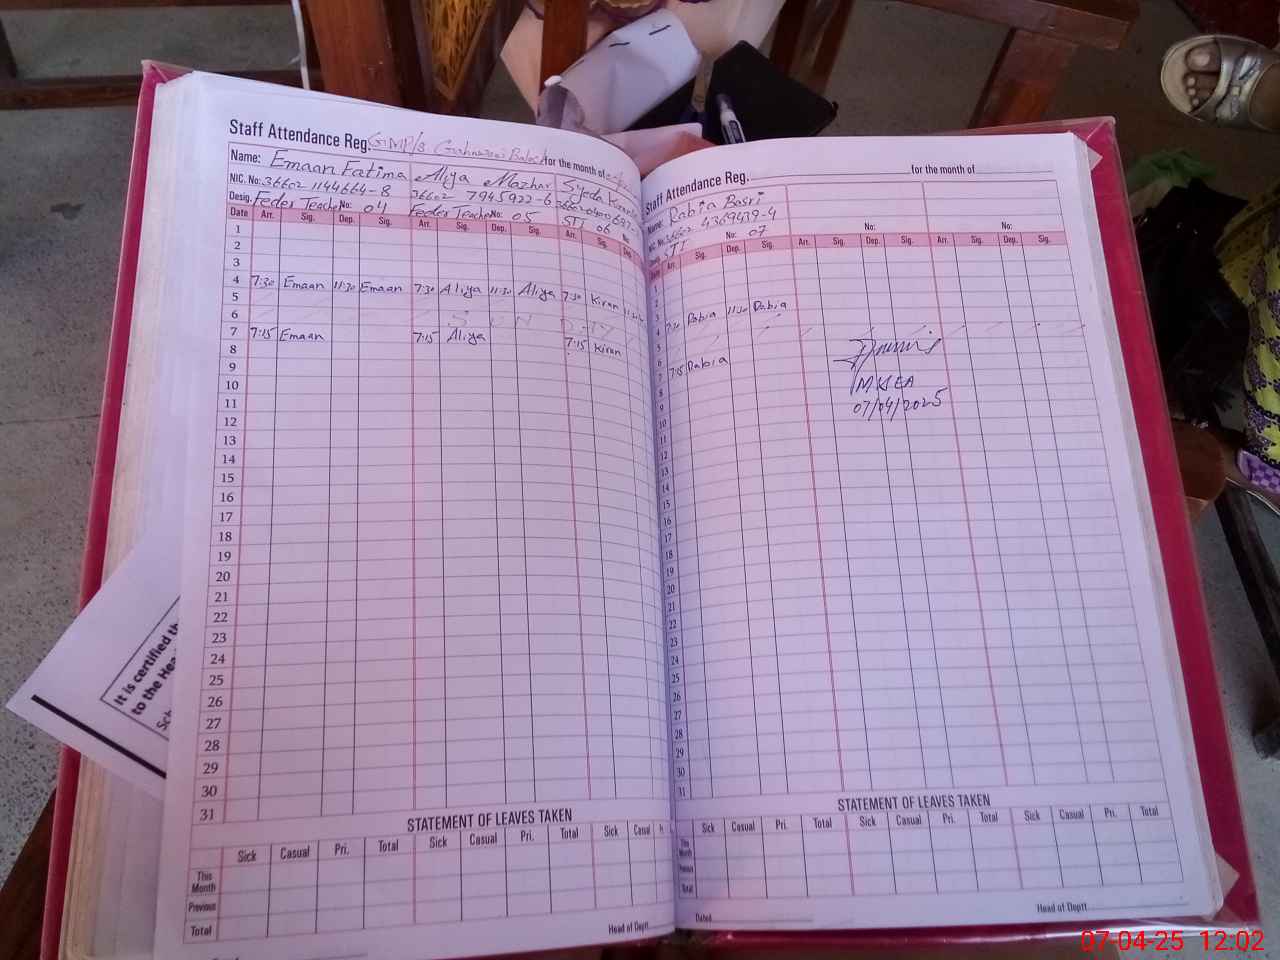 Staff Attendance Reg. GMP/S for the month of
Name: Emaan Fatima Aliya Mazhar Syeda
NIC. No: 36602 1144664-8 36602 7945922-6
Desig. Feder Teache No: 04 Feder Teache No: 05 STI 06 No:
Date Arr. Sig. Dep. Sig. Arr. Sig. Dep. Sig. Arr. Sig. Dep.
1
2
3
4 7:30 Emaan 11:30 Emaan 7:30 Aliya 11:30 Aliya 7:30 Kiran
5
6 S U N D A Y
7 7:15 Emaan 7:15 Aliya 7:15 Kiran
8
9
10
11
12
13
14
15
16
17
18
19
20
21
22
23
24
25
26
27
28
29
30
31
STATEMENT OF LEAVES TAKEN
Sick Casual Pri. Total Sick Casual Pri. Total Sick Casual
This Month
Previous
Total
Head of Deptt.
Staff Attendance Reg. for the month of
Name Rabia Basri
NIC. No. 36602 4369439-4
STI No: 07 No: No:
Arr. Sig. Dep. Sig. Arr. Sig. Dep. Sig. Arr. Sig. Dep. Sig.
1
2
3
4 7:30 Rabia 11:30 Rabia
5
6
7 7:15 Rabia
8
9
10
11
12
13
14
15
16
17
18
19
20
21
22
23
24
25
26
27
28
29
30
31
MKEA
07/04/2025
STATEMENT OF LEAVES TAKEN
Sick Casual Pri. Total Sick Casual Pri. Total Sick Casual Pri. Total
This Month
Previous
Total
Dated
Head of Deptt
It is certified th
to the Hea
Sch
07-04-25 12:02